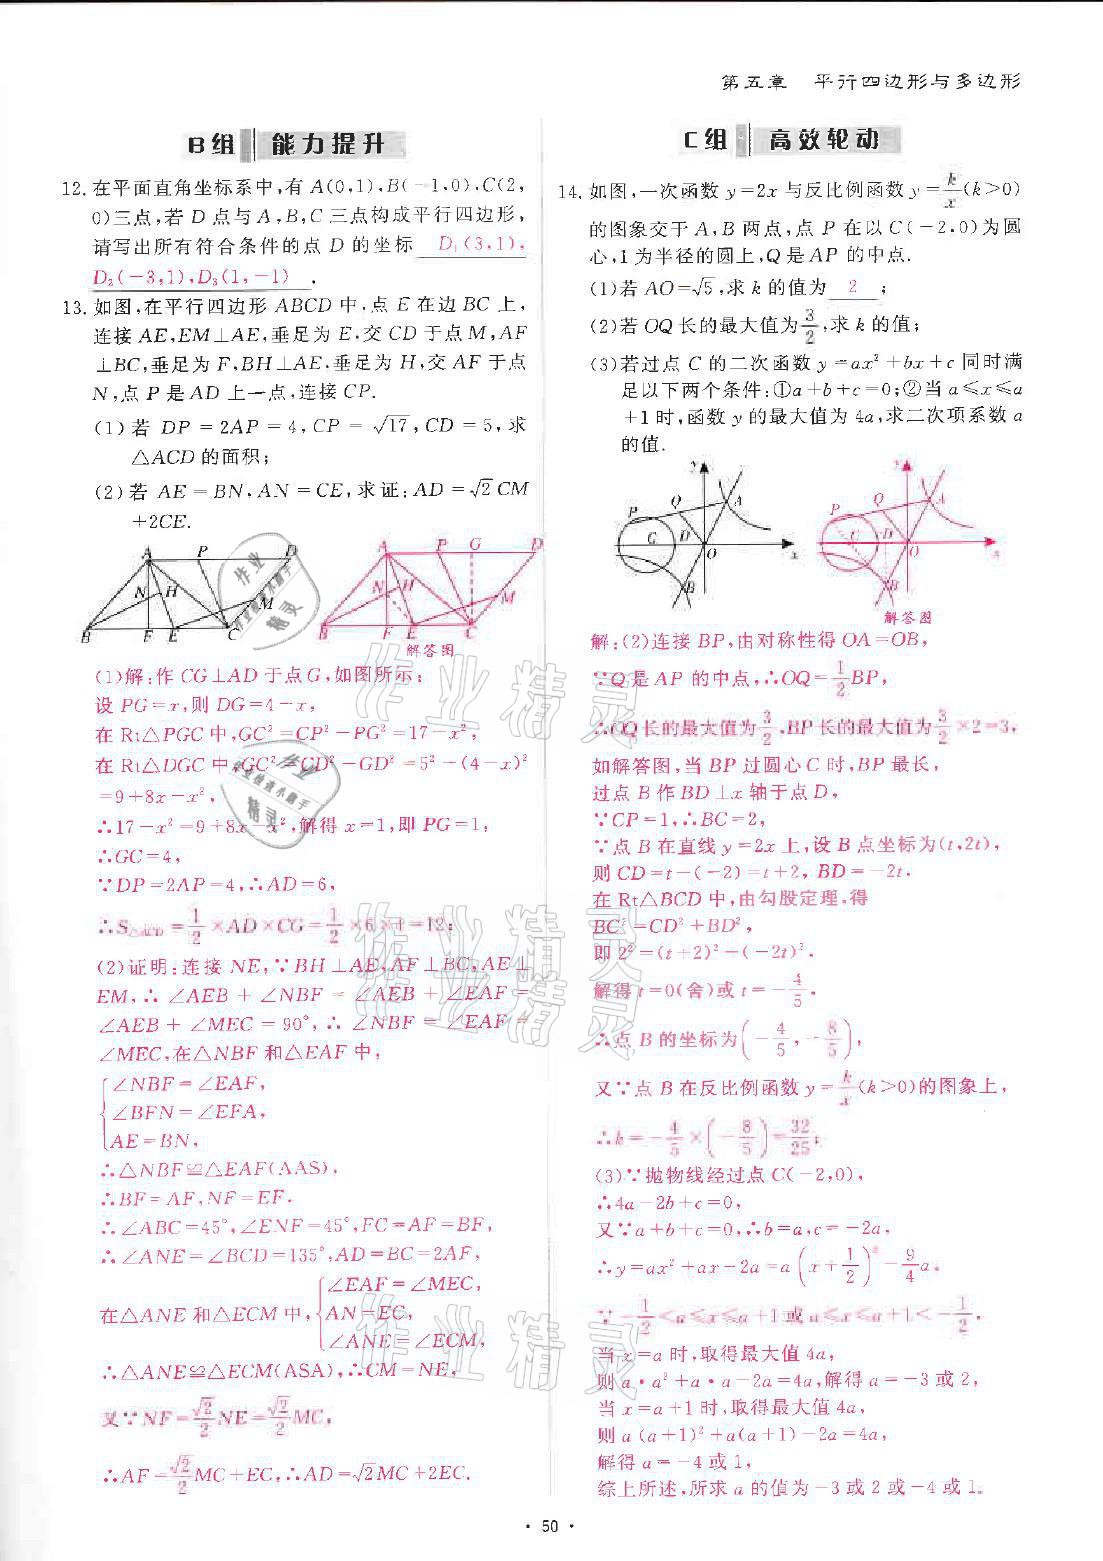 第五章 平行四边形与多边形
B组 能力提升
12. 在平面直角坐标系中,有 A(0,1),B(-1,0),C(2,
0)三点,若 D 点与 A,B,C 三点构成平行四边形,
请写出所有符合条件的点 D 的坐标 D₁(3,1),
D₂(-3,1),D₃(1,-1) .
13. 如图,在平行四边形 ABCD 中,点 E 在边 BC 上,
连接 AE,EM⊥AE,垂足为 E,交 CD 于点 M,AF
⊥BC,垂足为 F,BH⊥AE,垂足为 H,交 AF 于点
N,点 P 是 AD 上一点,连接 CP.
(1)若 DP=2AP=4,CP=√17,CD=5,求
△ACD 的面积;
(2)若 AE=BN,AN=CE,求证:AD=√2CM
+2CE.
A P D
N H M
B F E C
A P G D
N H M
B F E C
解答图
(1)解:作 CG⊥AD 于点 G,如图所示:
设 PG=x,则 DG=4-x,
在 Rt△PGC 中,GC²=CP²-PG²=17-x²,
在 Rt△DGC 中,GC²=CD²-GD²=5²-(4-x)²
=9+8x-x²,
∴17-x²=9+8x-x²,解得 x=1,即 PG=1,
∴GC=4,
∵DP=2AP=4,∴AD=6,
∴S△ACD=1/2×AD×CG=1/2×6×4=12;
(2)证明:连接 NE,∵BH⊥AE,AF⊥BC,AE⊥
EM,∴∠AEB+∠NBF=∠AEB+∠EAF=
∠AEB+∠MEC=90°,∴∠NBF=∠EAF=
∠MEC,在△NBF 和△EAF 中,
∠NBF=∠EAF,
∠BFN=∠EFA,
AE=BN,
∴△NBF≌△EAF(AAS),
∴BF=AF,NF=EF.
∴∠ABC=45°,∠ENF=45°,FC=AF=BF,
∴∠ANE=∠BCD=135°,AD=BC=2AF,
在△ANE 和△ECM 中,
∠EAF=∠MEC,
AN=EC,
∠ANE=∠ECM,
∴△ANE≌△ECM(ASA),∴CM=NE,
又∵NF=√2/2NE=√2/2MC,
∴AF=√2/2MC+EC,∴AD=√2MC+2EC.
C组 高效轮动
14. 如图,一次函数 y=2x 与反比例函数 y=k/x(k>0)
的图象交于 A,B 两点,点 P 在以 C(-2,0)为圆
心,1 为半径的圆上,Q 是 AP 的中点.
(1)若 AO=√5,求 k 的值为 2 ;
(2)若 OQ 长的最大值为3/2,求 k 的值;
(3)若过点 C 的二次函数 y=ax²+bx+c 同时满
足以下两个条件:①a+b+c=0;②当 a≤x≤a
+1 时,函数 y 的最大值为 4a,求二次项系数 a
的值.
y Q A P C D O x B
y Q A P C D O x B
解答图
解:(2)连接 BP,由对称性得 OA=OB,
∵Q 是 AP 的中点,∴OQ=1/2BP,
∴OQ 长的最大值为3/2,BP 长的最大值为3/2×2=3,
如解答图,当 BP 过圆心 C 时,BP 最长,
过点 B 作 BD⊥x 轴于点 D,
∵CP=1,∴BC=2,
∵点 B 在直线 y=2x 上,设 B 点坐标为(t,2t),
则 CD=t-(-2)=t+2,BD=-2t.
在 Rt△BCD 中,由勾股定理,得
BC²=CD²+BD²,
即 2²=(t+2)²-(-2t)².
解得 t=0(舍)或 t=-4/5.
∴点 B 的坐标为(-4/5,-8/5),
又∵点 B 在反比例函数 y=k/x(k>0)的图象上,
∴k=-4/5×(-8/5)=32/25;
(3)∵抛物线经过点 C(-2,0),
∴4a-2b+c=0,
又∵a+b+c=0,∴b=a,c=-2a,
∴y=ax²+ax-2a=a(x+1/2)²-9/4a.
∵-1/2<a≤x≤a+1 或 a≤x≤a+1<-1/2,
当 x=a 时,取得最大值 4a,
则 a·a²+a·a-2a=4a,解得 a=-3 或 2,
当 x=a+1 时,取得最大值 4a,
则 a(a+1)²+a(a+1)-2a=4a,
解得 a=-4 或 1,
综上所述,所求 a 的值为-3 或 2 或-4 或 1.
· 50 ·
作业精灵
作业精灵
作业精灵
作业精灵